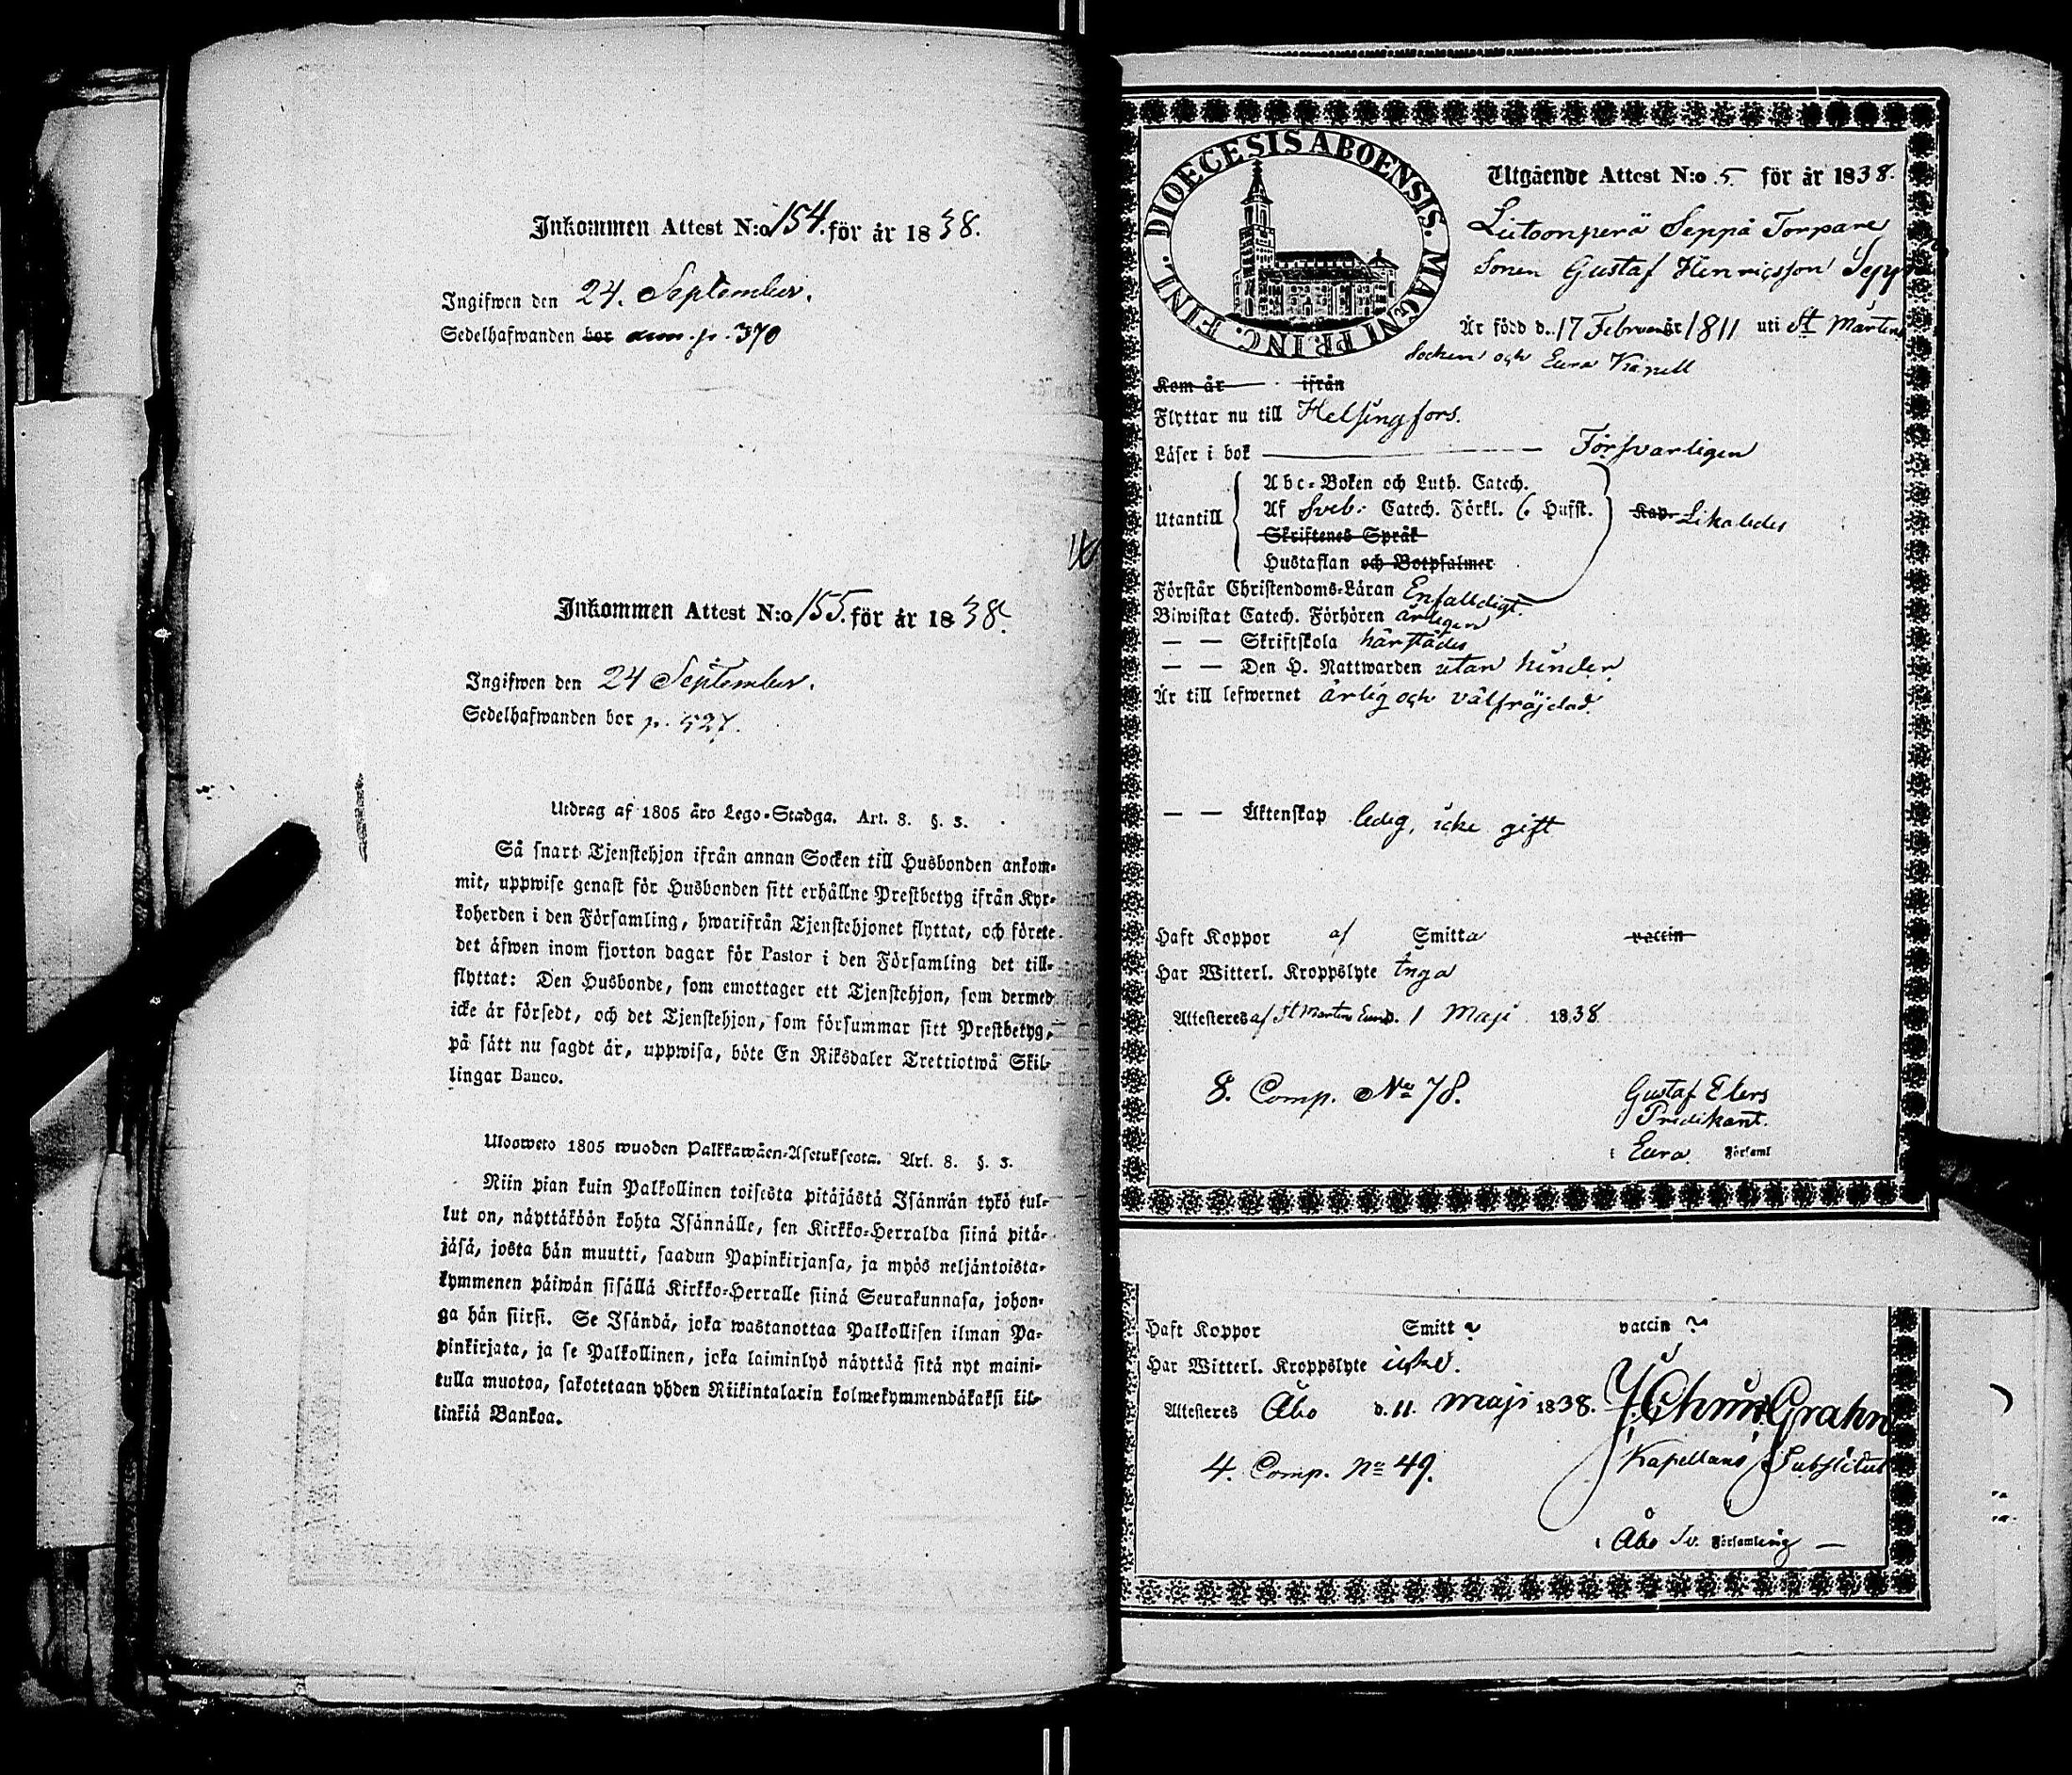 Inkommen Attest N:o 154. för år 1838.
Ingifwen den 24. September.
Sedelhafwanden bor ann. p. 370
Inkommen Attest N:o 155. för år 1838.
Ingifwen den 24 September.
Sedelhafwanden bor p. 527.
Utdrag af 1805 års Lego-Stadga. Art. 8. §. 3.
Så snart Tjenstehjon ifrån annan Socken till Husbonden ankom-
mit, uppwise genast för Husbonden sitt erhållne Prestbetyg ifrån Kyr-
koherden i den Församling, hwarifrån Tjenstehjonet flyttat, och förete
det äfwen inom fjorton dagar för Pastor i den Församling det till-
flyttat: Den Husbonde, som emottager ett Tjenstehjon, som dermed
icke är försedt, och det Tjenstehjon, som försummar sitt Prestbetyg,
på sätt nu sagdt är, uppwisa, böte En Riksdaler Trettiotwå Skil-
lingar Banco.
Ulosweto 1805 wuoden Palkkawäen-Asetuksesta. Art. 8. §. 3.
Niin pian kuin Palkollinen toisesta pitäjästä Isännän tykö tul-
lut on, näyttäköön kohta Isännälle, sen Kirkko-Herralda siinä pitä-
jäsä, josta hän muutti, saadun Papinkirjansa, ja myös neljäntoista-
kymmenen päiwän sisällä Kirkko-Herralle siinä Seurakunnasa, johon-
ga hän siirsi. Se Isändä, joka wastanottaa Palkollisen ilman Pa-
pinkirjata, ja se Palkollinen, joka laiminlyö näyttää sitä nyt maini-
tulla muotoa, sakotetaan yhden Riikintalarin kolmekymmendäkaksi kil-
linkiä Bankoa.
DIOECESIS ABOENSIS. MAGNI PRINC. FINL.
Utgående Attest N:o 5. för år 1838.
Lutsonperä Seppä Torpare
Sonen Gustaf Henricsson Sepp
Är född d. 17 Februari år 1811 uti St Mårtens
Socken och Eura Kapell
Kom år ifrån
Flyttar nu till Helsingfors.
Läser i bok Försvarligen
Utantill
Abc-Boken och Luth. Catech.
Af Sveb. Catech. Förkl. 6 Hufst.
Likaledes
Skriftenes Språk
Hustaflan och Botpsalmer
Förstår Christendoms-Läran Enfaldigt
Biwistat Catech. Förhören årligen
— — Skriftskola härstädes
— — Den H. Nattwarden utan hinder
Är till lefwernet ärlig och välfräjdad.
— — Äktenskap ledig, icke gift
Haft Koppor af Smitta vaccin
Har Witterl. Kroppslyte Inga
Attesteres af St Mårtens Eura d. 1 Maji 1838
8. Comp. No 78.
Gustaf Elers
Predikant.
i Eura Församl
Haft Koppor Smitt vaccin
Har Witterl. Kroppslyte icke.
Attesteres Åbo d. 11. maji 1838. Grahn
4. Comp. No 49.
Kapellans Substitut
i Åbo Sv. Församling —